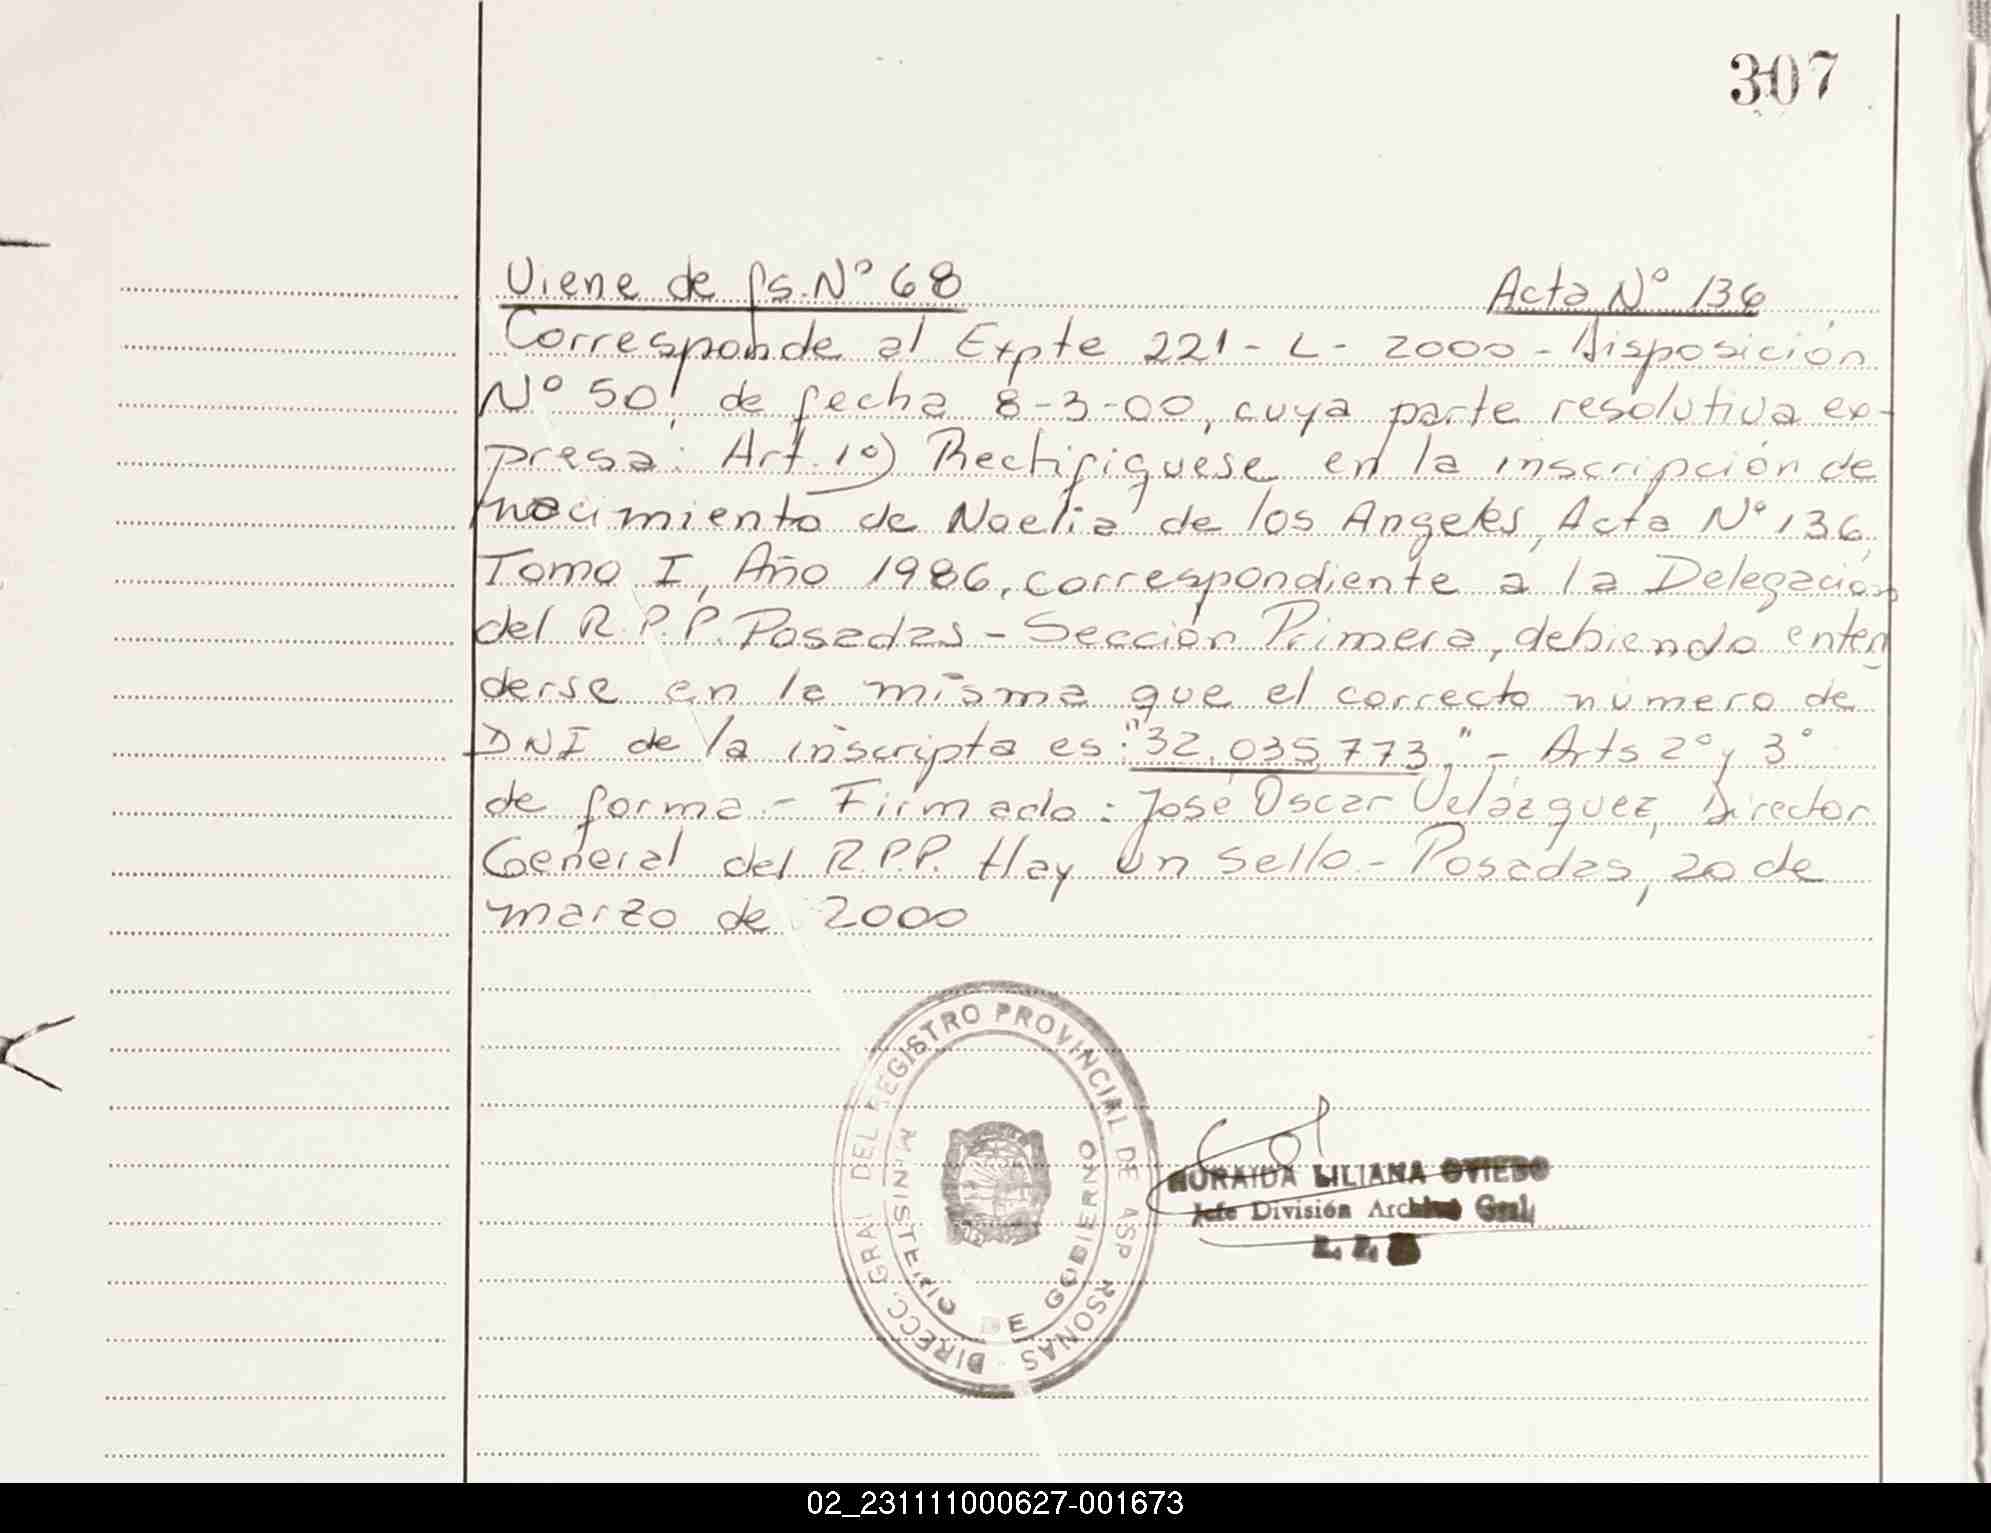 307
Viene de fs. Nº 68 Acta Nº 136
Corresponde al Expte 221-L-2000-Disposición
Nº 50, de fecha 8-3-00, cuya parte resolutiva ex-
presa: Art. 1º) Rectifíquese en la inscripción de
nacimiento de Noelia de los Angeles, Acta Nº 136,
Tomo I, Año 1986, correspondiente a la Delegación
del R.P.P. Posadas - Sección Primera, debiendo enten
derse en la misma que el correcto número de
DNI de la inscripta es: "32.035.773" - Arts 2º y 3º
de forma.- Firmado: José Oscar Velázquez, Director
General del R.P.P. Hay un sello.- Posadas, 20 de
marzo de 2000
DIRECC. GRAL DEL REGISTRO PROVINCIAL DE LAS PERSONAS
MINISTERIO DE GOBIERNO
LILIANA OVIEDO
Jefe División Archivo Gral.
02_231111000627-001673